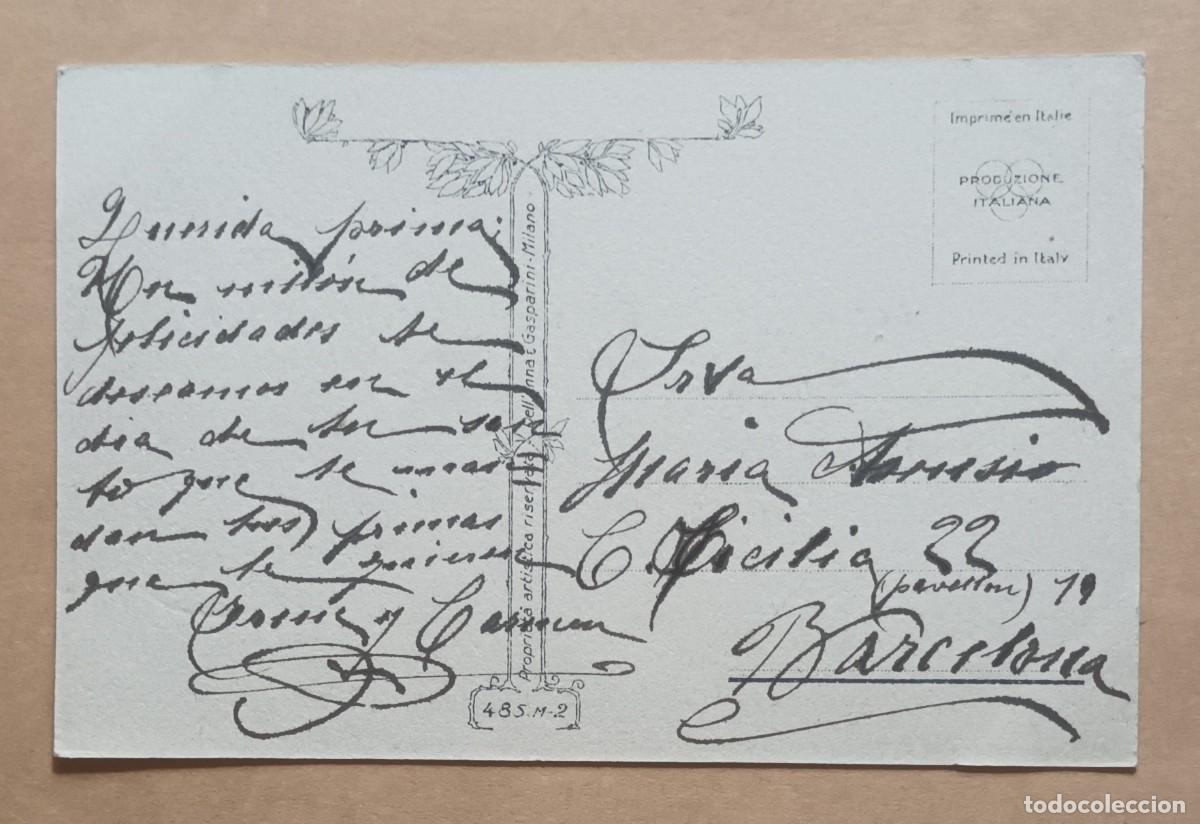 Querida prima:
Un millón de
felicidades te
deseamos en el
dia de tu san
to que te man
dan tus primas
que te quieren
y Carmen
Imprimé en Italie
PRODUZIONE
ITALIANA
Printed in Italy
Proprietà artistica riservata dell'Anna & Gasparini-Milano
485 M-2
Srta
Maria Asensio
C. Sicilia 22
(pavellon) 19
Barcelona
todocoleccion